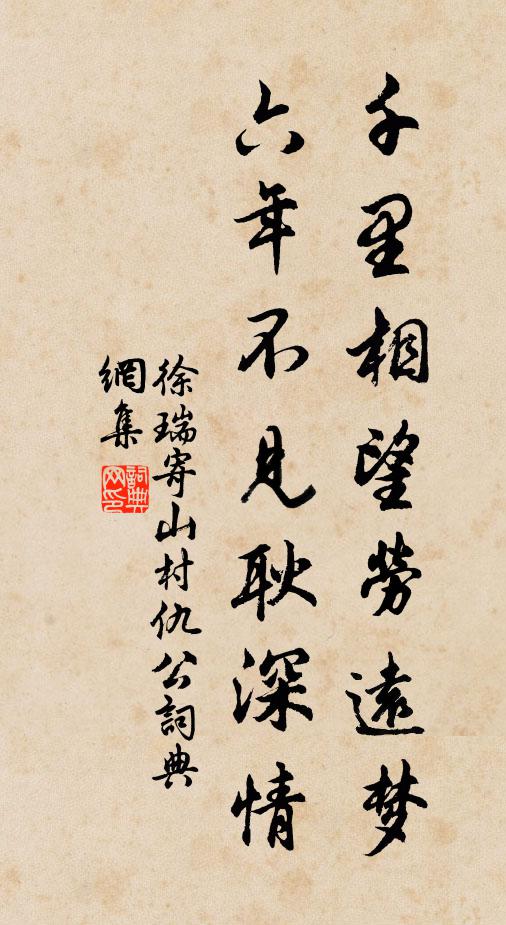 千里相望勞遠梦
六年不見耿深情
徐瑞寄山村仇公詞典
網集
詞典
网印